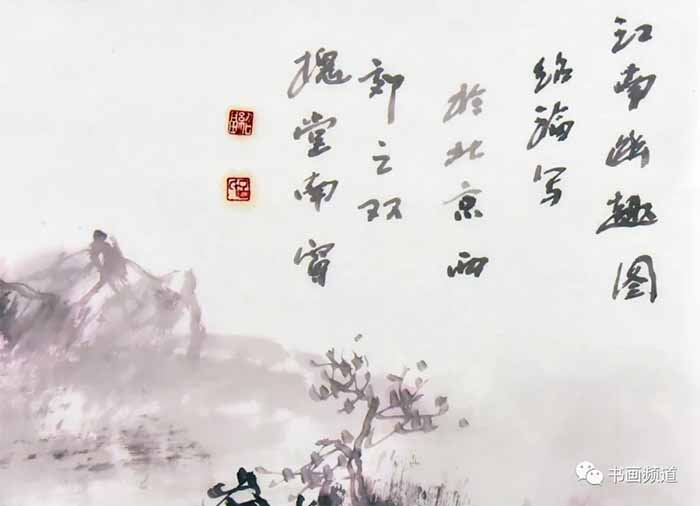 江南幽趣图
绍写
於北京西
郊之双
槐堂南窗
书画频道